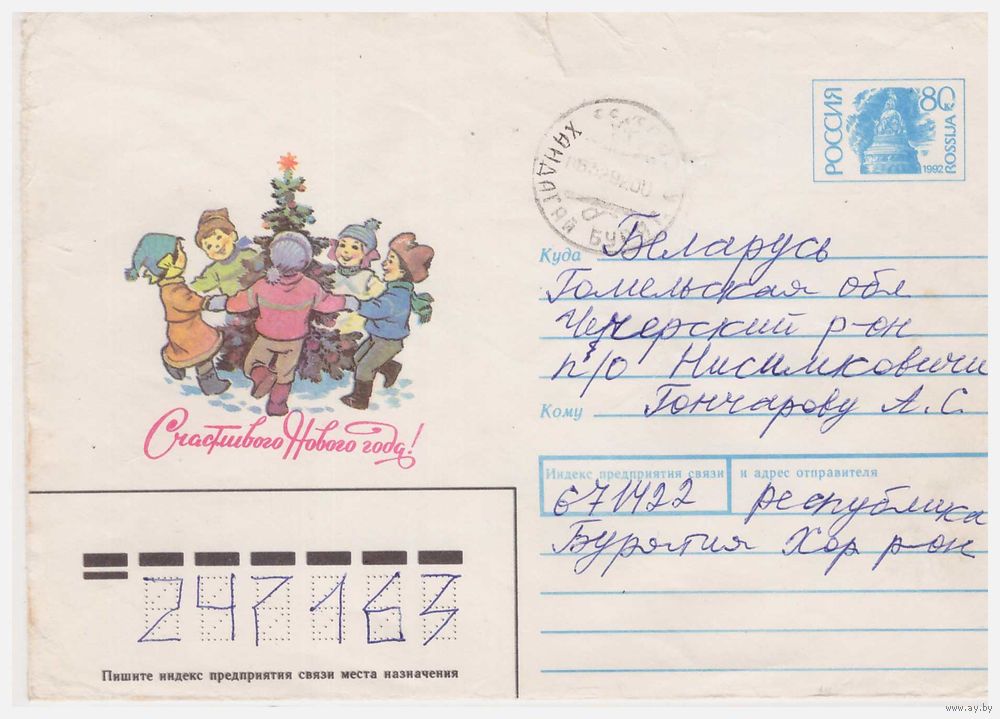 РОССИЯ
80 к
1992
ROSSIJA
ХАНДАГАЙ БУРЯТ
Счастливого Нового года!
Куда Беларусь
Гомельская обл
Чечерский р-он
п/о Нисимковичи
Кому Гончарову А.С.
Индекс предприятия связи и адрес отправителя
671422 республика
Бурятия Хор р-он
247163
Пишите индекс предприятия связи места назначения
www.ay.by